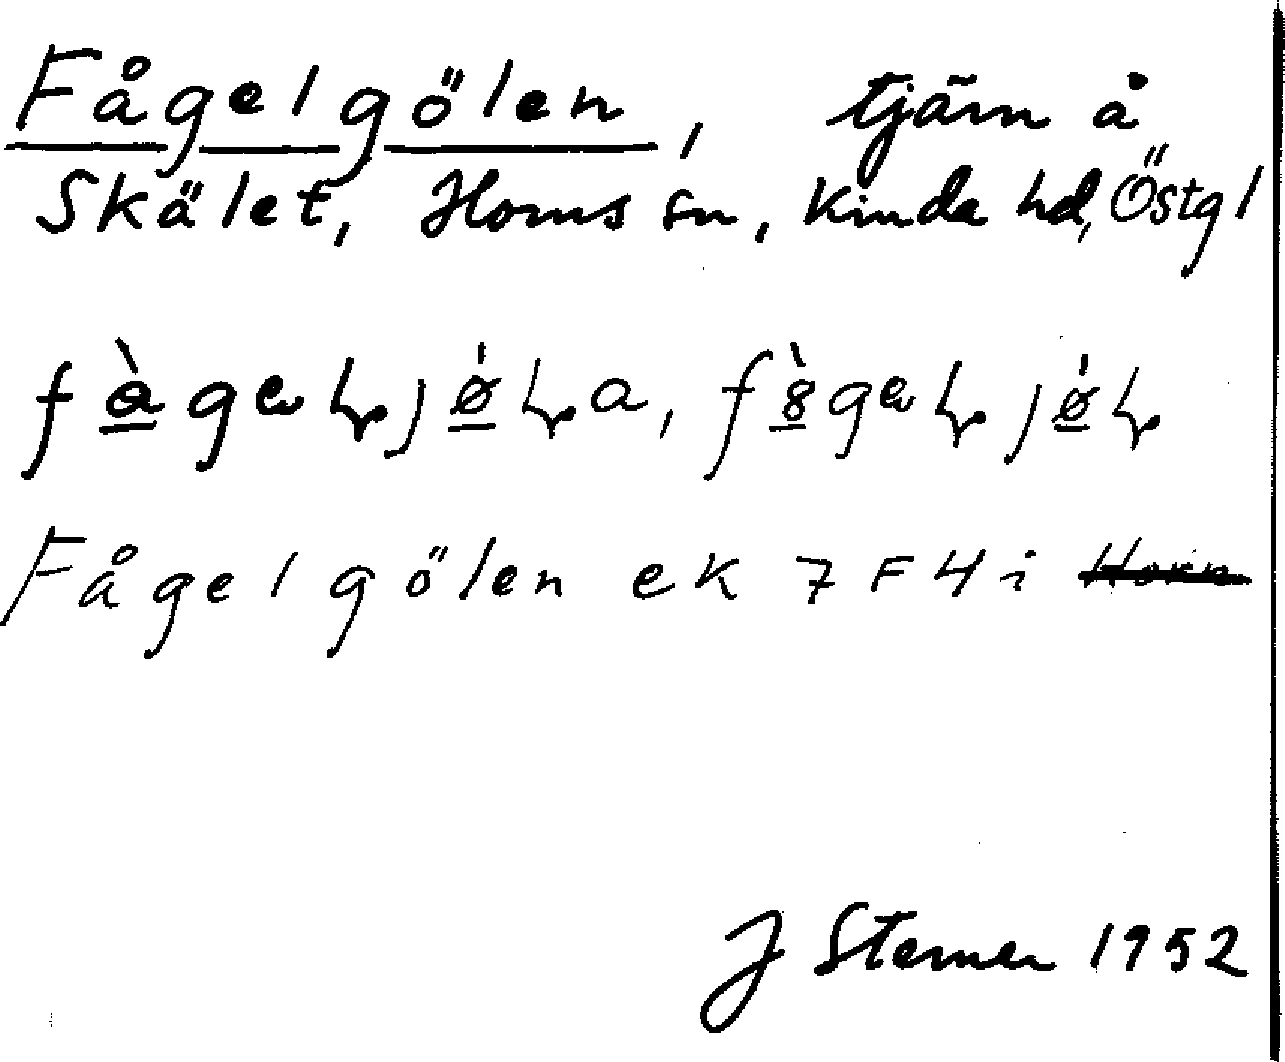 Fågelgölen, tjärn å
Skälet, Horns sn, Kinda hd, Östgl
Fågelgölen ek 7F4i Horn
J Sterner 1952